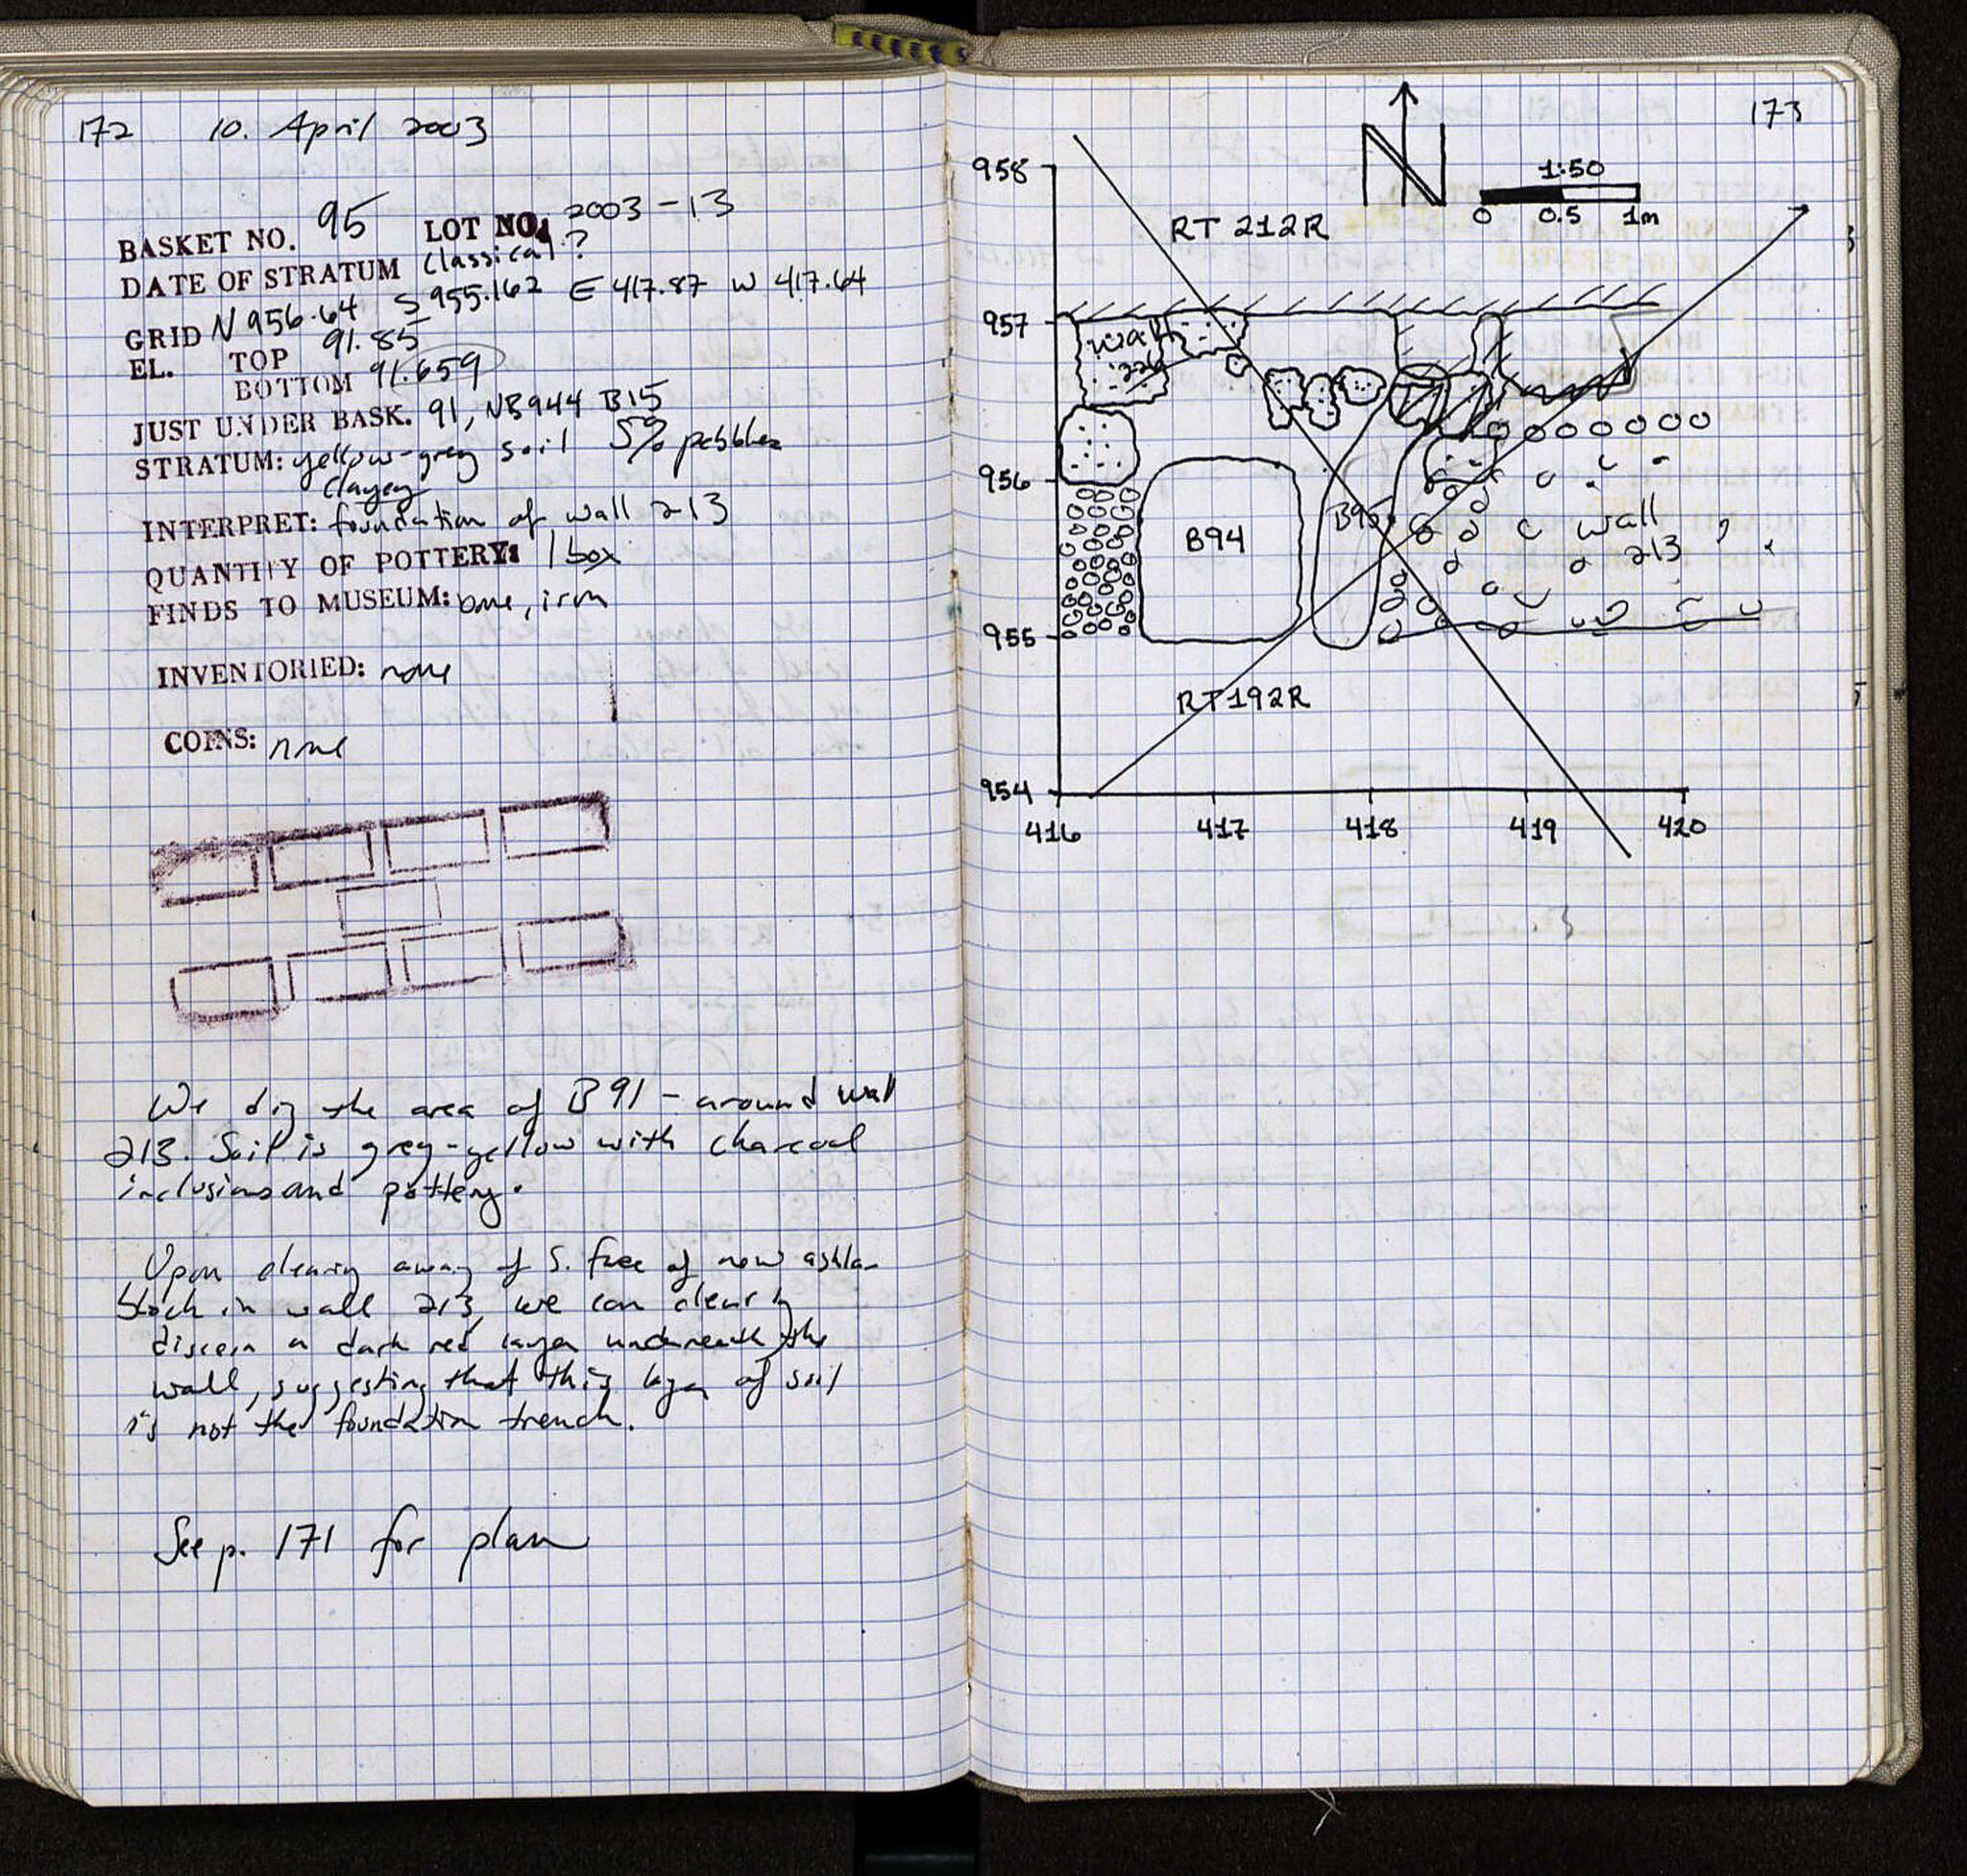 172 10. April 2003
BASKET NO. 95 LOT NO. 2003-13
DATE OF STRATUM Classical?
GRID N 956.64 S 955.162 E 417.87 W 417.64
EL. TOP 91.85
BOTTOM 91.659
JUST UNDER BASK. 91, NB944 B15
STRATUM: yellow-grey soil 5% pebbles
clayey
INTERPRET: foundation of wall 213
QUANTITY OF POTTERY: 1 box
FINDS TO MUSEUM: bone, iron
INVENTORIED: none
COINS: none
We dig the area of B91 - around wall
213. Soil is grey-yellow with charcoal
inclusions and pottery.
Upon clearing away of S. face of new
block in wall 213, we can clearly
discern a dark red layer underneath the
wall, suggesting that this layer of soil
is not the foundation trench.
See p. 171 for plan
173
N
1:50
0 0.5 1m
958
RT 212R
957
wall
956
B94
B95
wall
213
955
RT192R
954
416 417 418 419 420